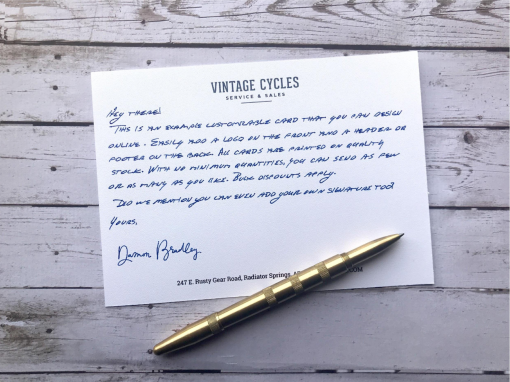 VINTAGE CYCLES
SERVICE & SALES
HEY THERE!
THIS IS AN EXAMPLE CUSTOMIZABLE CARD THAT YOU CAN DESIGN
ONLINE. EASILY ADD A LOGO ON THE FRONT AND A HEADER OR
FOOTER ON THE BACK. ALL CARDS ARE PRINTED ON QUALITY
STOCK. WITH NO MINIMUM QUANTITIES, YOU CAN SEND AS FEW
OR AS MANY AS YOU LIKE. BULK DISCOUNTS APPLY.
DID WE MENTION YOU CAN EVEN ADD YOUR OWN SIGNATURE TOO?
YOURS,
Damon Bradley
247 E. Rusty Gear Road, Radiator Springs,